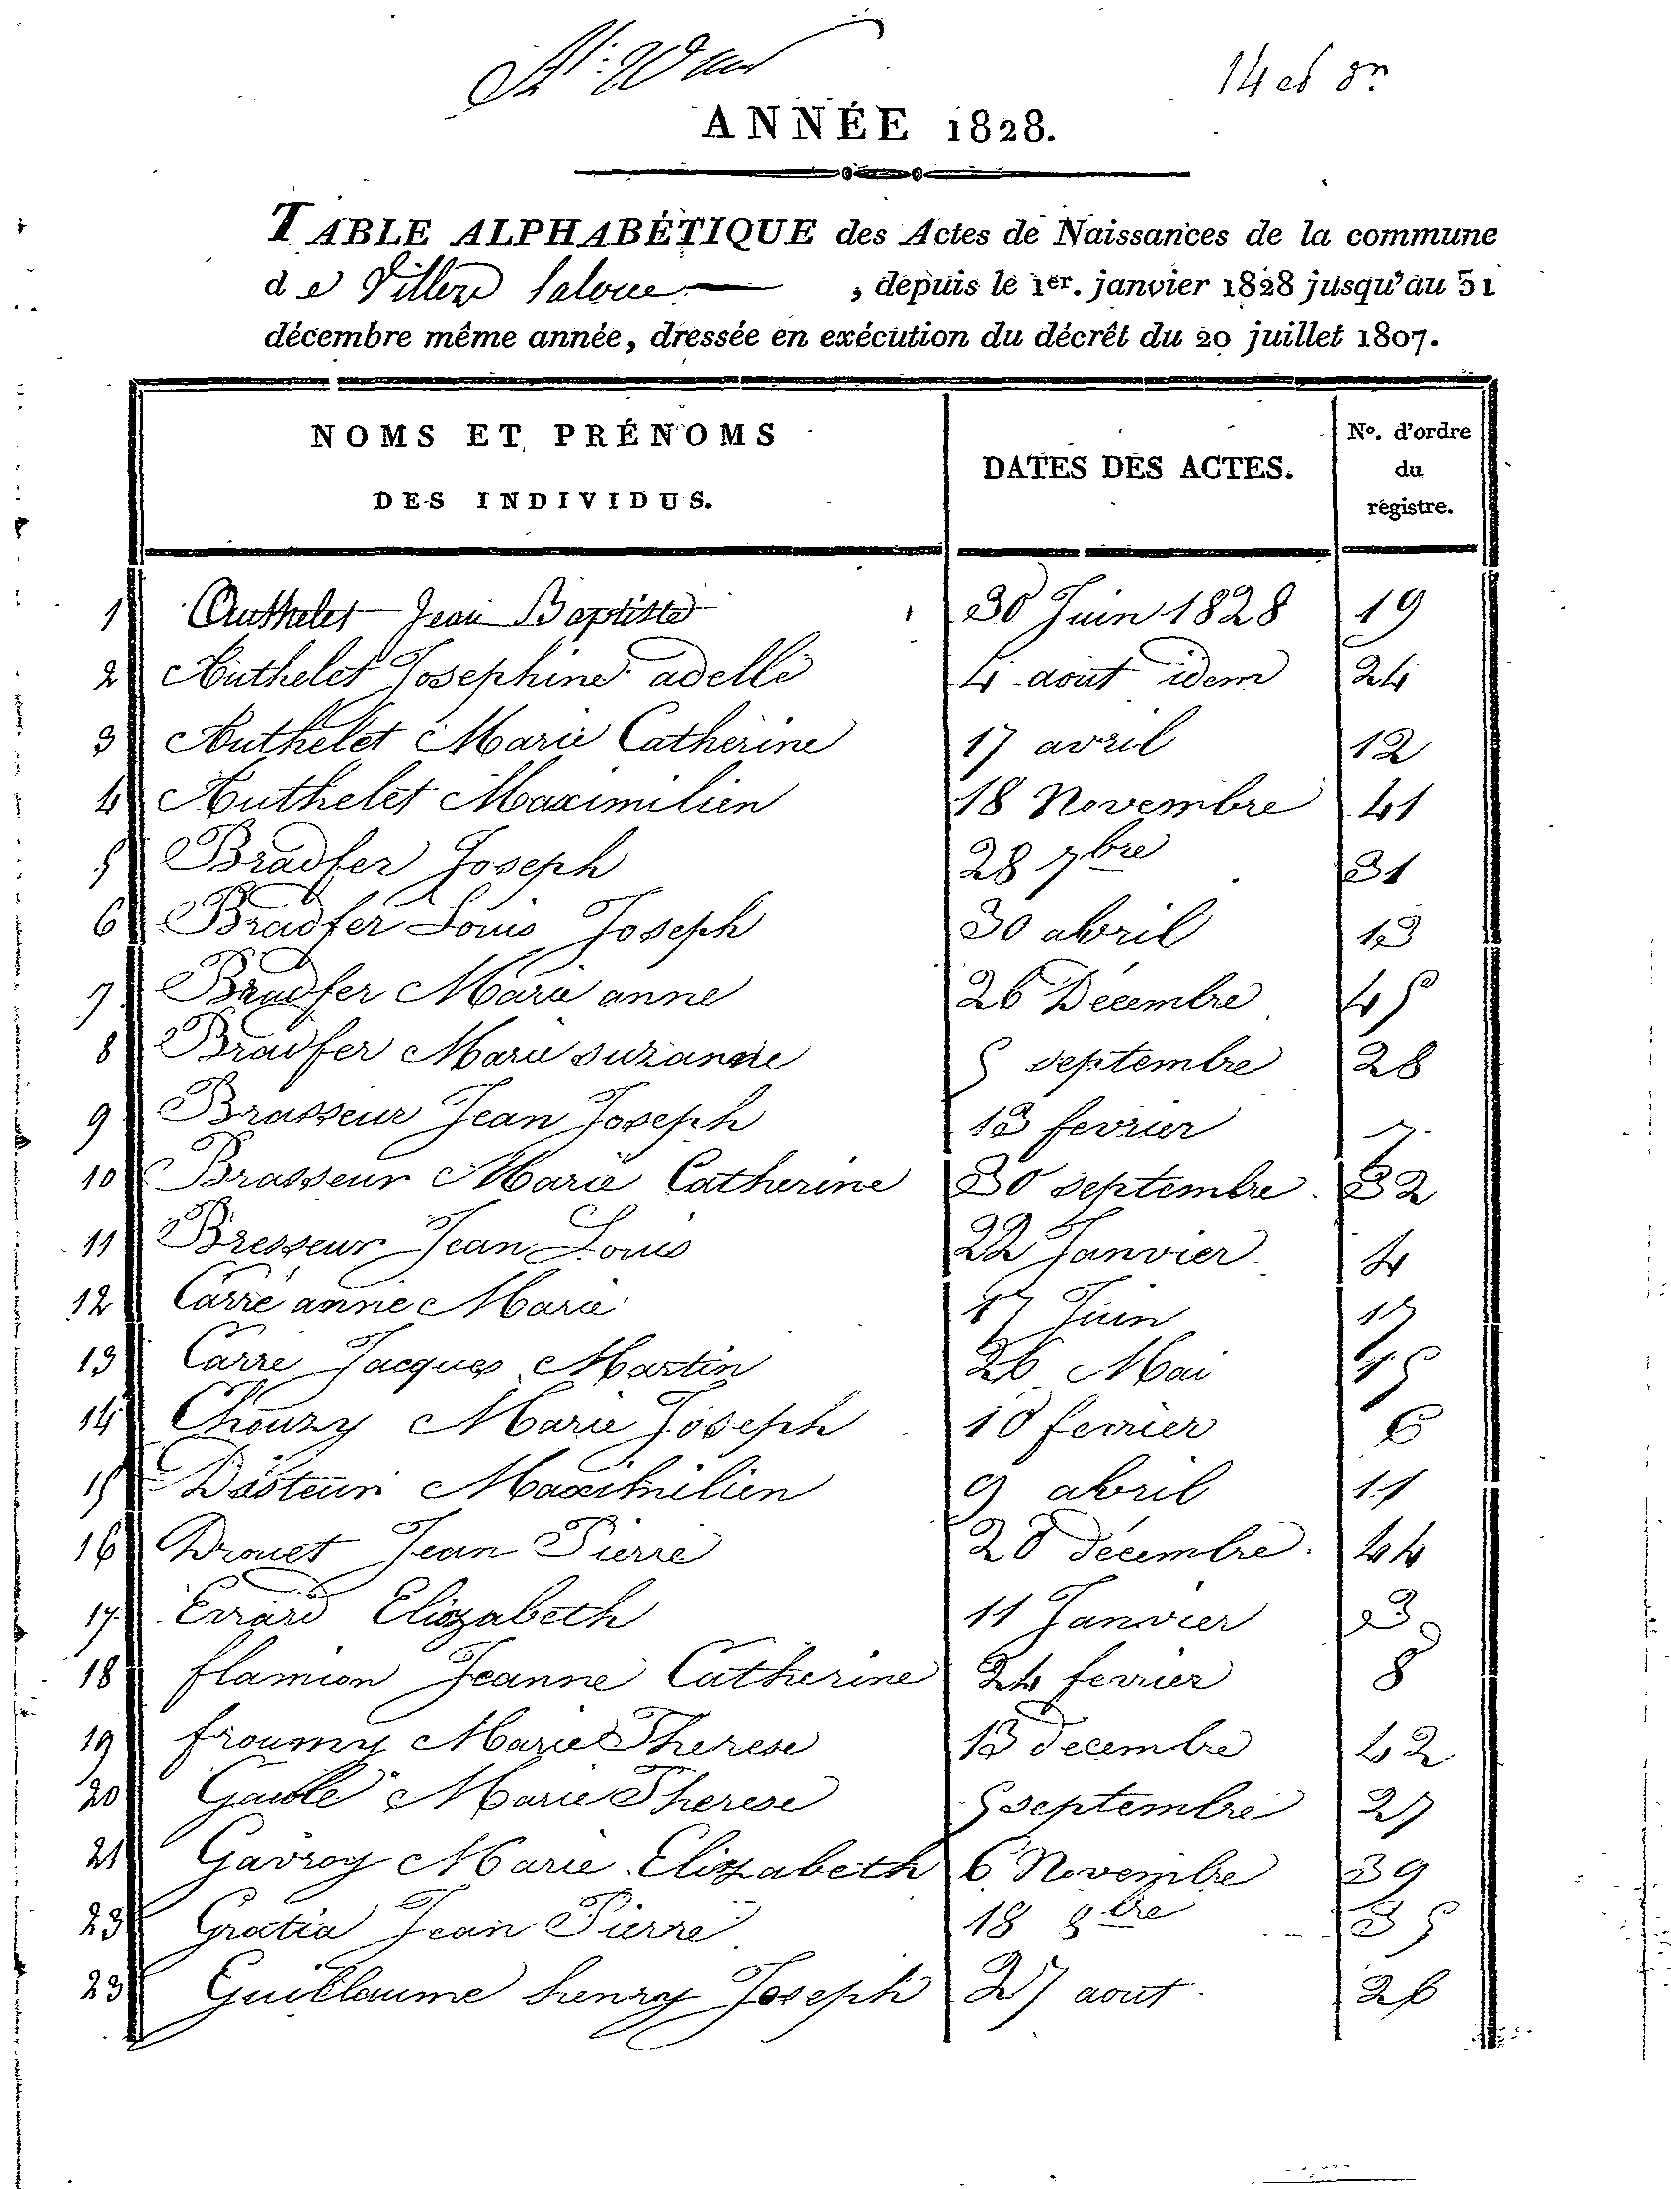 14
ANNÉE 1828.
TABLE ALPHABÉTIQUE des Actes de Naissances de la commune
de Villers laloue , depuis le 1er. janvier 1828 jusqu'au 31
décembre même année, dressée en exécution du décrêt du 20 juillet 1807.
NOMS ET PRÉNOMS
DES INDIVIDUS.
DATES DES ACTES.
No. d'ordre
du
régistre.
1 Authelet Jean Baptiste 30 Juin 1828 19
2 Authelet Josephine adelle 4 aout idem 24
3 Authelet Marie Catherine 17 avril 12
4 Authelet Maximilien 18 Novembre 41
5 Bradfer Joseph 28 7bre 31
6 Bradfer Louis Joseph 30 abril 13
7 Bradfer Marie anne 26 Décembre 45
8 Bradfer Marie suzanne 5 septembre 28
9 Brasseur Jean Joseph 13 fevrier 7
10 Brasseur Marie Catherine 30 septembre 32
11 Bresseur Jean Louis 22 Janvier 4
12 Carré anne Marie 17 Juin 17
13 Carré Jacques Martin 26 Mai 15
14 Chouzy Marie Joseph 10 fevrier 6
15 Maximilien 9 abril 11
16 Drouet Jean Pierre 20 décembre 44
17 Evrard Elizabeth 11 Janvier 3
18 flamion Jeanne Catherine 24 fevrier 8
19 froumy Marie Therese 13 decembre 42
20 Gaulle Marie Therese 5 septembre 27
21 Gavroy Marie Elizabeth 6 Novembre 39
23 Gratia Jean Pierre 18 8bre 35
23 Guillaume henry Joseph 27 aout 26